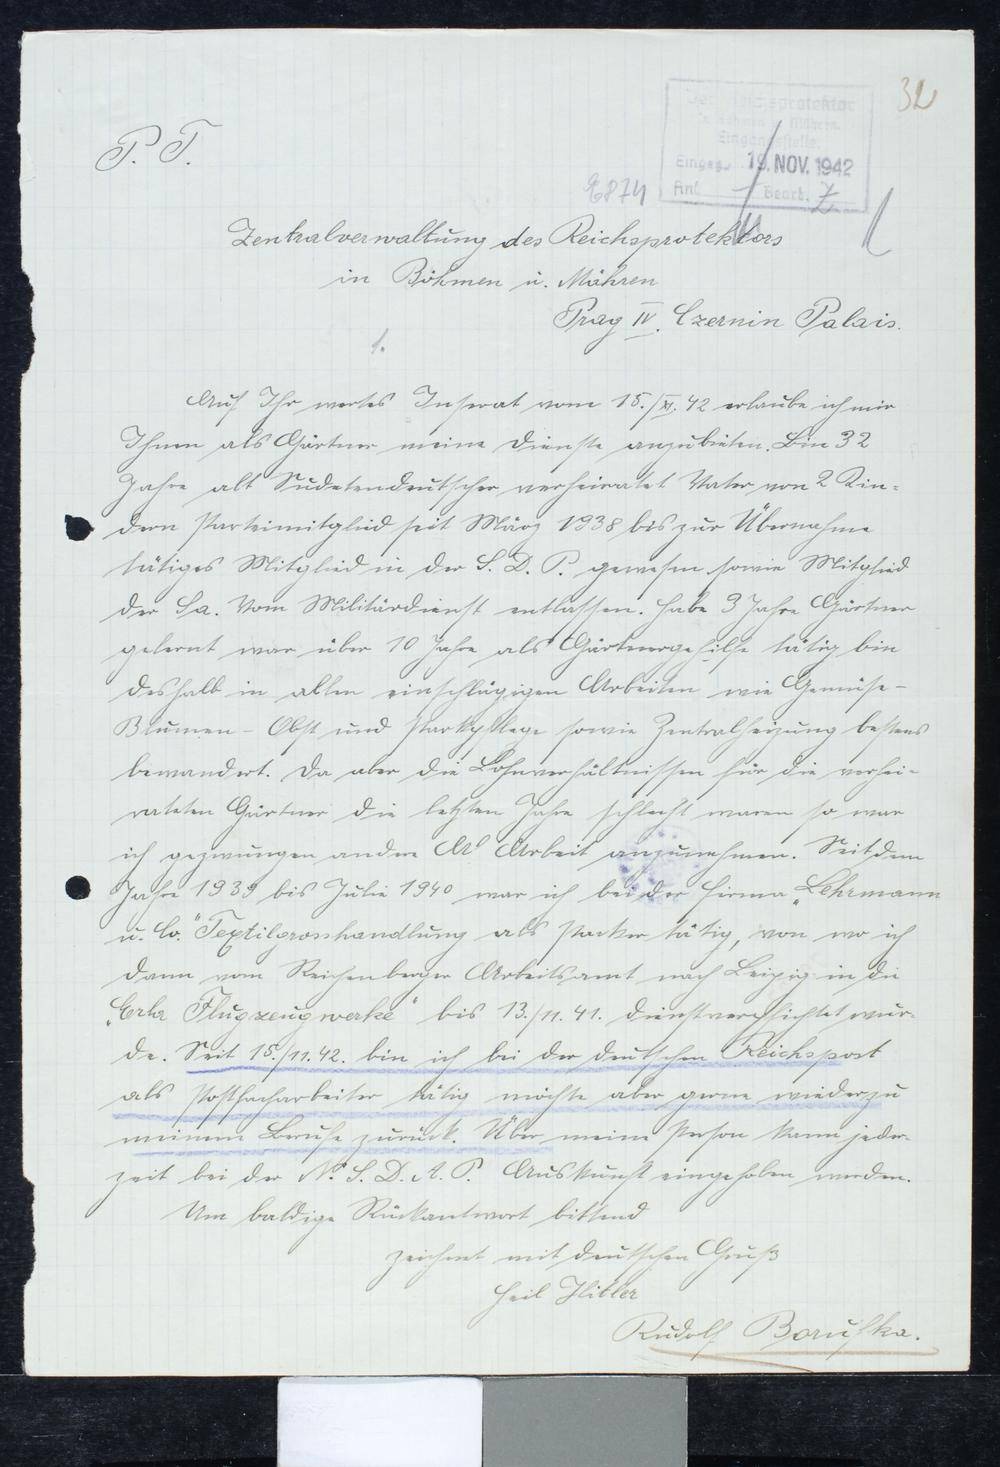 32
Der Reichsprotektor
in Böhmen u. Mähren.
Eingangsstelle.
Eingeg. 19. NOV. 1942
Anl. Bearb. Z
P. T.
Zentralverwaltung des Reichsprotektors
in Böhmen u. Mähren
Prag IV. Czernin Palais.
1.
Auf Ihr wertes Inserat vom 15./XI. 42 erlaube ich mir
Ihnen als Gärtner meine Dienste anzubieten. Bin 32
Jahre alt Sudetendeutscher verheiratet Vater von 2 Kin-
dern Parteimitglied seit März 1938 bis zur Übernahme
tätiges Mitglied in der S. D. P. gewesen sowie Mitglied
der Sa. Vom Militärdienst entlassen. Habe 3 Jahre Gärtner
gelernt war über 10 Jahre als Gärtnergehilfe tätig bin
deshalb in allen einschlägigen Arbeiten wie Gemüse-
Blumen- Obst und Parkpflege sowie Zentralheizung bestens
bewandert. Da aber die Lohnverhältnissen für die verhei-
rateten Gärtner die letzten Jahre schlecht waren so war
ich gezwungen andere Arbeit anzunehmen. Seit dem
Jahre 1939 bis Juli 1940 war ich bei der Firma „Lehrmann
u. Co." Textilgrosshandlung als Packer tätig, von wo ich
dann vom Reichenberger Arbeitsamt nach Leipzig in die
„Erla Flugzeugwerke" bis 13./11. 41. dienstverpflichtet wur-
de. Seit 15./11. 42. bin ich bei der deutschen Reichspost
als Postfacharbeiter tätig möchte aber gerne wieder zu
meinem Berufe zurück. Über meine Person kann jeder-
zeit bei der N. S. D. A. P. Auskunft eingehoben werden.
Um baldige Rückantwort bittend
zeichnet mit deutschen Gruß
Heil Hitler
Rudolf Boruska.